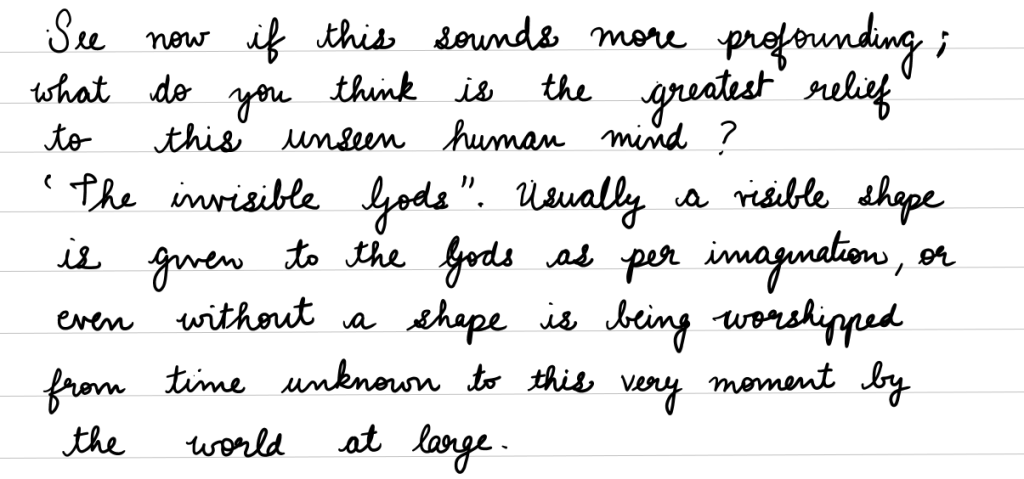 See now if this sounds more profounding;
what do you think is the greatest relief
to this unseen human mind?
‘The invisible Gods". Usually a visible shape
is given to the Gods as per imagination, or
even without a shape is being worshipped
from time unknown to this very moment by
the world at large.